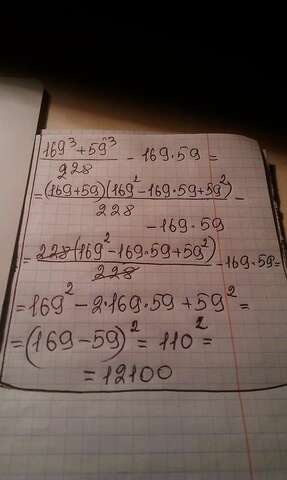 169³+59³/228 - 169·59 =
= (169+59)(169²-169·59+59²)/228 -
- 169·59
= 228(169²-169·59+59²)/228 - 169·59 =
= 169² - 2·169·59 + 59² =
= (169-59)² = 110² =
= 12100